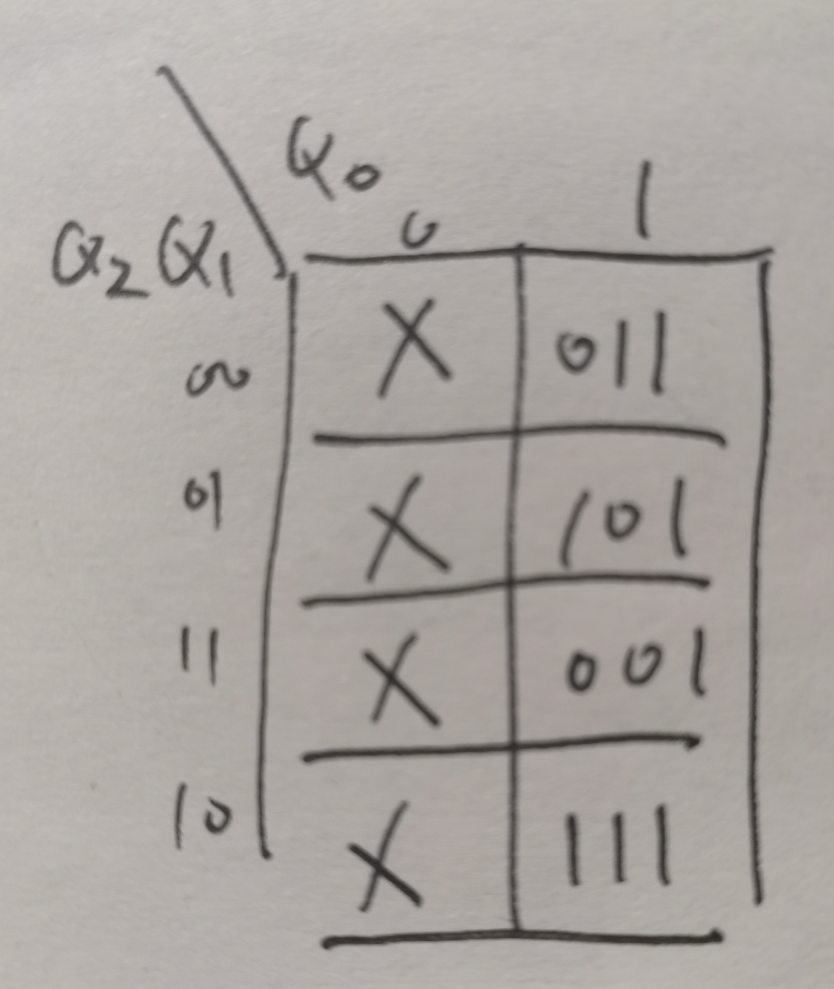 Q₀
0 1
Q₂Q₁
00 X 011
01 X 101
11 X 001
10 X 111